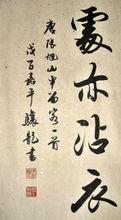 處亦沾衣
唐張旭山中留客一首
戊子嘉平驤龍書